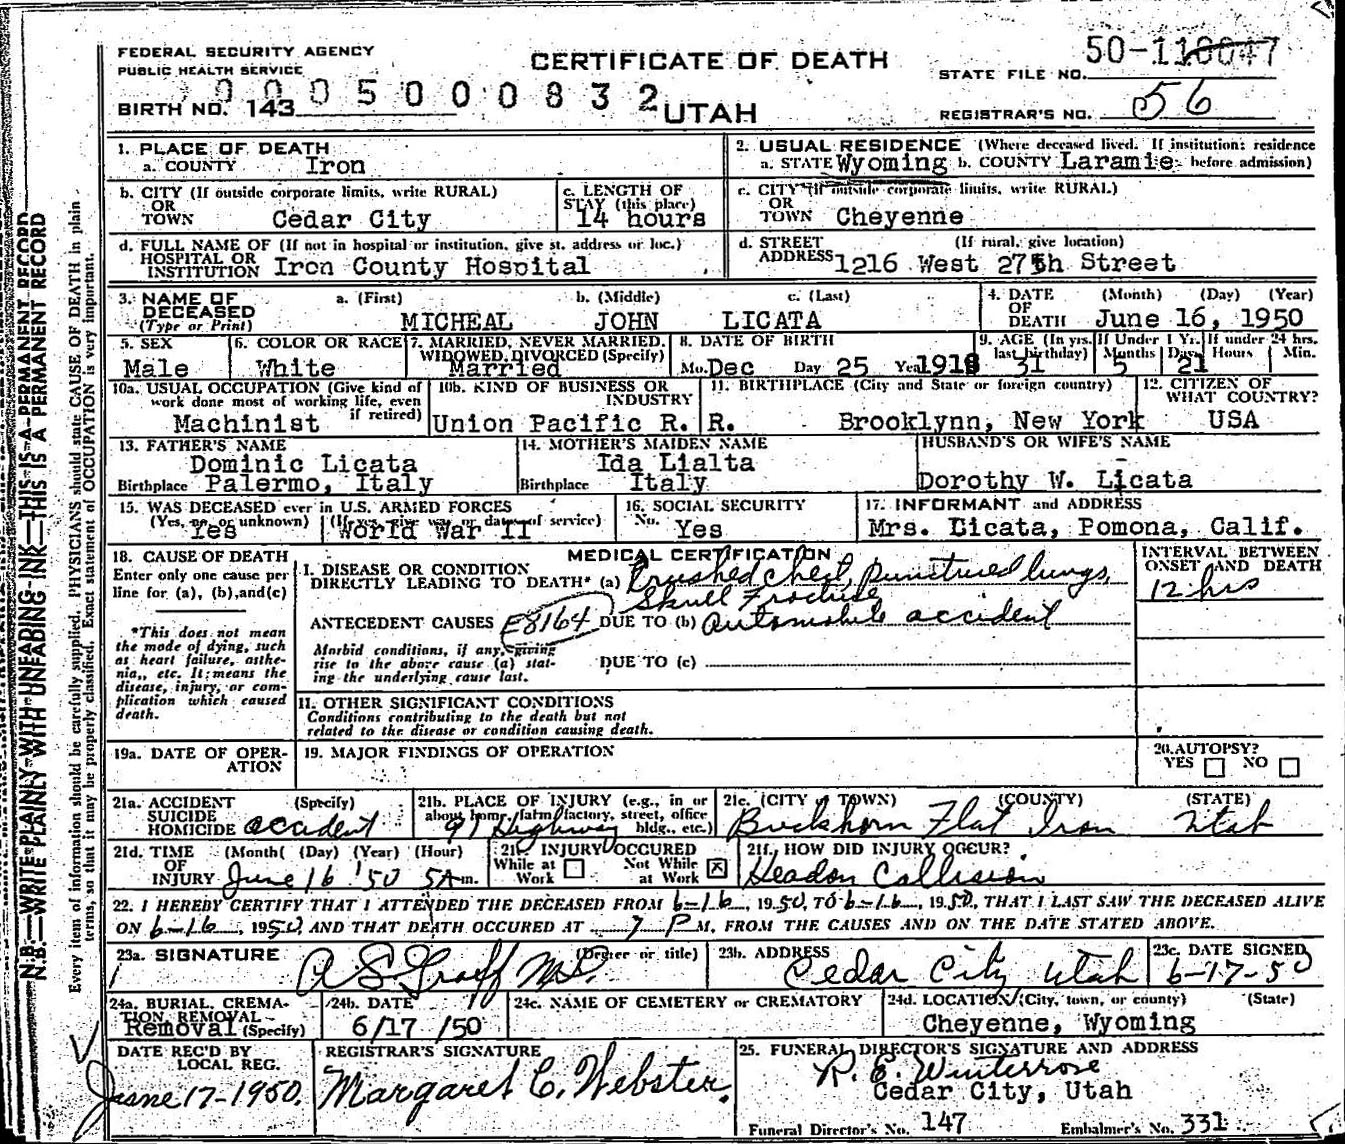 FEDERAL SECURITY AGENCY
PUBLIC HEALTH SERVICE
CERTIFICATE OF DEATH
STATE FILE NO. 50-110047
0005000832
BIRTH NO. 143
UTAH
REGISTRAR'S NO. 56
1. PLACE OF DEATH
a. COUNTY Iron
2. USUAL RESIDENCE (Where deceased lived. If institution: residence
a. STATE Wyoming b. COUNTY Laramie before admission)
b. CITY (If outside corporate limits, write RURAL)
OR
TOWN Cedar City
c. LENGTH OF
STAY (this place)
14 hours
c. CITY (If outside corporate limits, write RURAL)
OR
TOWN Cheyenne
d. FULL NAME OF (If not in hospital or institution, give st. address or loc.)
HOSPITAL OR
INSTITUTION Iron County Hospital
d. STREET (If rural, give location)
ADDRESS 1216 West 27th Street
3. NAME OF DECEASED
(Type or Print)
a. (First) b. (Middle) c. (Last)
MICHEAL JOHN LICATA
4. DATE OF DEATH (Month) (Day) (Year)
June 16, 1950
5. SEX
Male
6. COLOR OR RACE
White
7. MARRIED, NEVER MARRIED,
WIDOWED, DIVORCED (Specify)
Married
8. DATE OF BIRTH
Mo. Dec Day 25 Year 1918
9. AGE (In yrs. last birthday) 31
If Under 1 Yr. Months 5 Days 21
If under 24 hrs. Hours Min.
10a. USUAL OCCUPATION (Give kind of
work done most of working life, even
if retired)
Machinist
10b. KIND OF BUSINESS OR
INDUSTRY
Union Pacific R. R.
11. BIRTHPLACE (City and State or foreign country)
Brooklynn, New York
12. CITIZEN OF
WHAT COUNTRY?
USA
13. FATHER'S NAME
Dominic Licata
Birthplace Palermo, Italy
14. MOTHER'S MAIDEN NAME
Ida Lialta
Birthplace Italy
HUSBAND'S OR WIFE'S NAME
Dorothy W. Licata
15. WAS DECEASED ever in U.S. ARMED FORCES
(Yes, no, or unknown) (If yes, give war or dates of service)
Yes World War II
16. SOCIAL SECURITY
No. Yes
17. INFORMANT and ADDRESS
Mrs. Licata, Pomona, Calif.
18. CAUSE OF DEATH
Enter only one cause per
line for (a), (b), and (c)
*This does not mean
the mode of dying, such
as heart failure, asthe-
nia,, etc. It means the
disease, injury, or com-
plication which caused
death.
MEDICAL CERTIFICATION
I. DISEASE OR CONDITION
DIRECTLY LEADING TO DEATH* (a) Crushed chest, punctured lungs,
Skull Fracture
ANTECEDENT CAUSES E8164 DUE TO (b) Automobile accident
Morbid conditions, if any, giving
rise to the above cause (a) stat-
ing the underlying cause last.
DUE TO (c)
II. OTHER SIGNIFICANT CONDITIONS
Conditions contributing to the death but not
related to the disease or condition causing death.
INTERVAL BETWEEN
ONSET AND DEATH
12 hrs
19a. DATE OF OPER-
ATION
19. MAJOR FINDINGS OF OPERATION
20. AUTOPSY?
YES NO
21a. ACCIDENT (Specify)
SUICIDE
HOMICIDE accident
21b. PLACE OF INJURY (e.g., in or
about home, farm, factory, street, office
bldg., etc.)
91 Highway
21c. (CITY or TOWN) (COUNTY) (STATE)
Buckhorn Flat Iron Utah
21d. TIME (Month) (Day) (Year) (Hour)
OF
INJURY June 16 '50 5 A m.
21e. INJURY OCCURED
While at Work Not While at Work X
21f. HOW DID INJURY OCCUR?
Headon Collision
22. I HEREBY CERTIFY THAT I ATTENDED THE DECEASED FROM 6-16, 1950, TO 6-16, 1950, THAT I LAST SAW THE DECEASED ALIVE
ON 6-16, 1950, AND THAT DEATH OCCURED AT 7 P M, FROM THE CAUSES AND ON THE DATE STATED ABOVE.
23a. SIGNATURE (Degree or title)
A S Graff MD.
23b. ADDRESS
Cedar City Utah
23c. DATE SIGNED
6-17-50
24a. BURIAL, CREMA-
TION REMOVAL
Removal (Specify)
24b. DATE
6/17/50
24c. NAME OF CEMETERY or CREMATORY
24d. LOCATION (City, town, or county) (State)
Cheyenne, Wyoming
DATE REC'D BY
LOCAL REG.
June 17-1950.
REGISTRAR'S SIGNATURE
Margaret C. Webster.
25. FUNERAL DIRECTOR'S SIGNATURE AND ADDRESS
R. E. Winterrose
Cedar City, Utah
Funeral Director's No. 147 Embalmer's No. 331
N.B.—WRITE PLAINLY WITH UNFADING INK—THIS IS A PERMANENT RECORD
N.B.—WRITE PLAINLY WITH UNFADING INK—THIS IS A PERMANENT RECORD
Every item of information should be carefully supplied. PHYSICIANS should state CAUSE OF DEATH in plain
terms, so that it may be properly classified. Exact statement of OCCUPATION is very important.